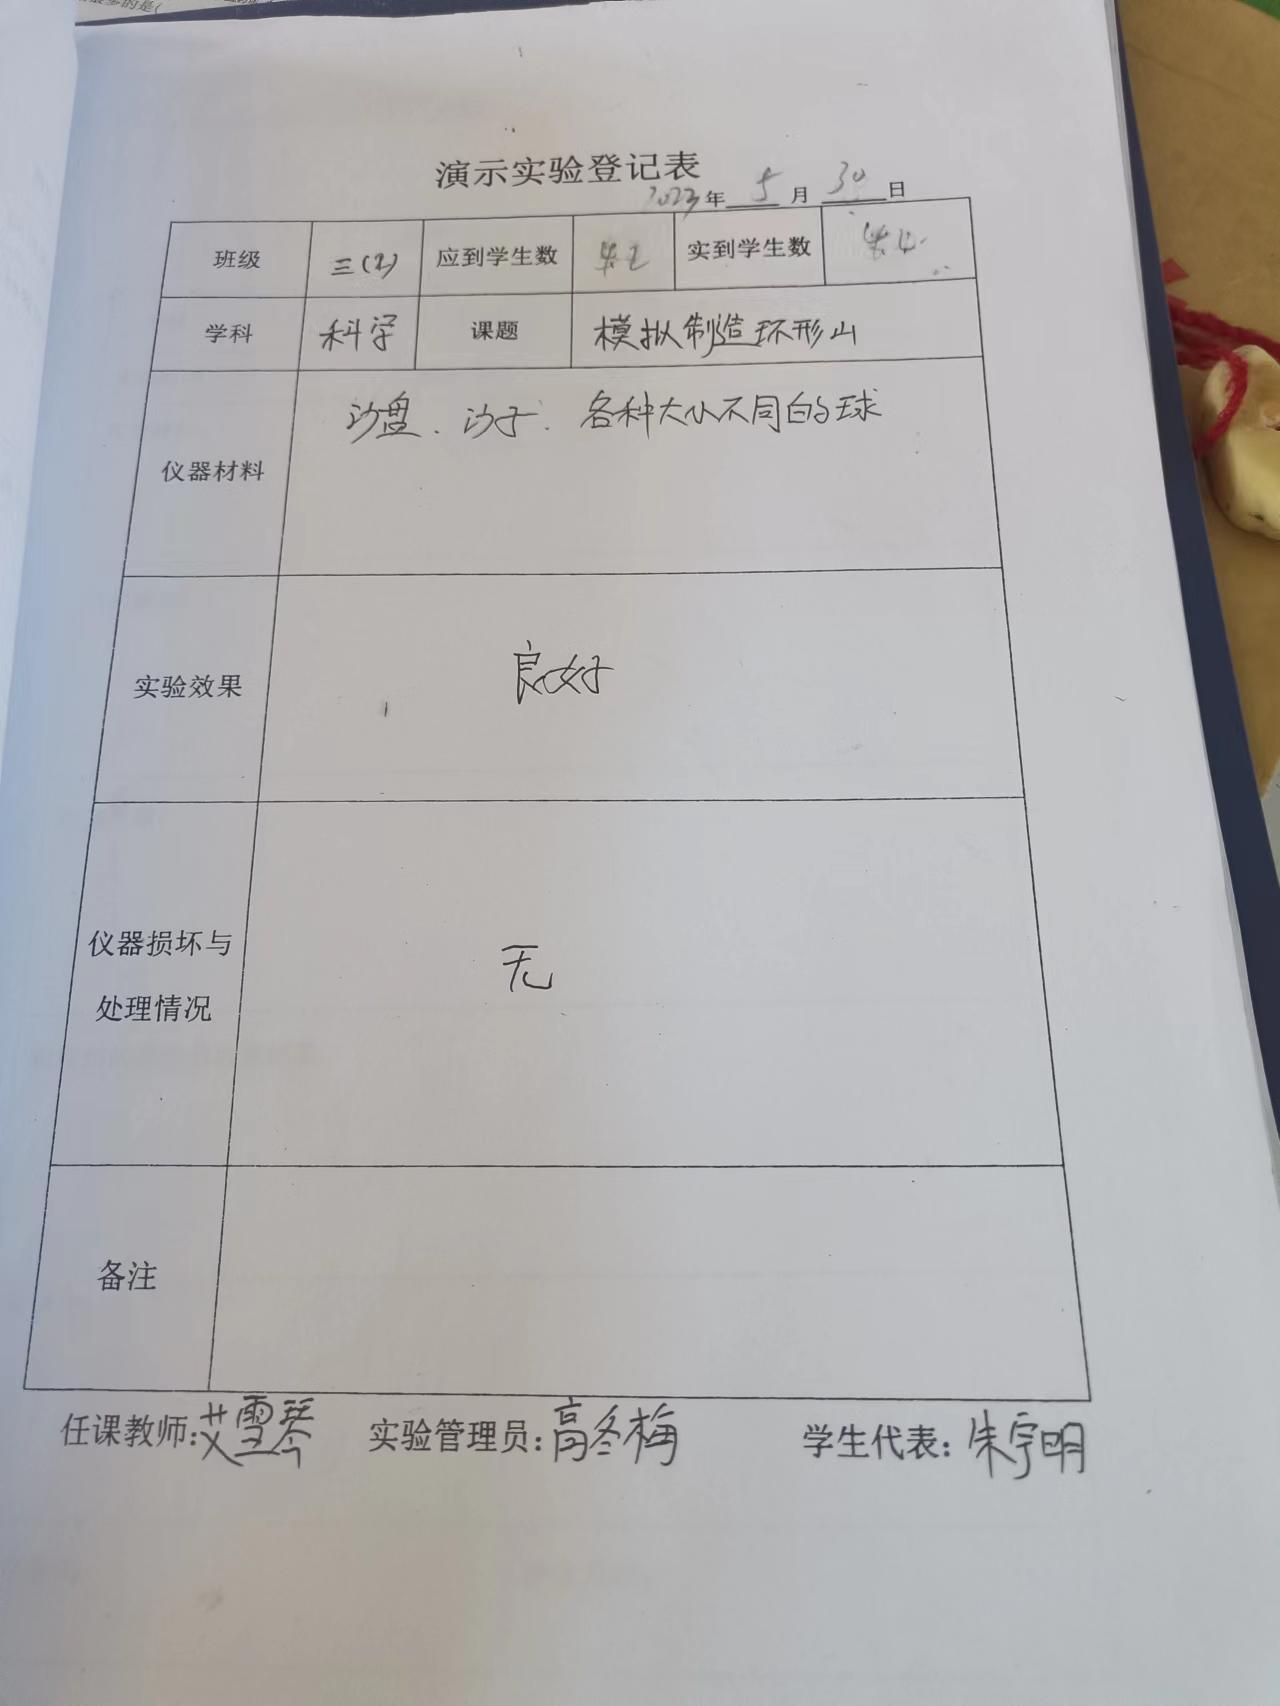 演示实验登记表
2023年 5 月 30 日
班级 三(2) 应到学生数 实到学生数
学科 科学 课题 模拟制造环形山
仪器材料 沙盘、沙子、各种大小不同的球
实验效果 良好
仪器损坏与
处理情况 无
备注
任课教师:艾雪琴 实验管理员:高冬梅 学生代表:朱宇明